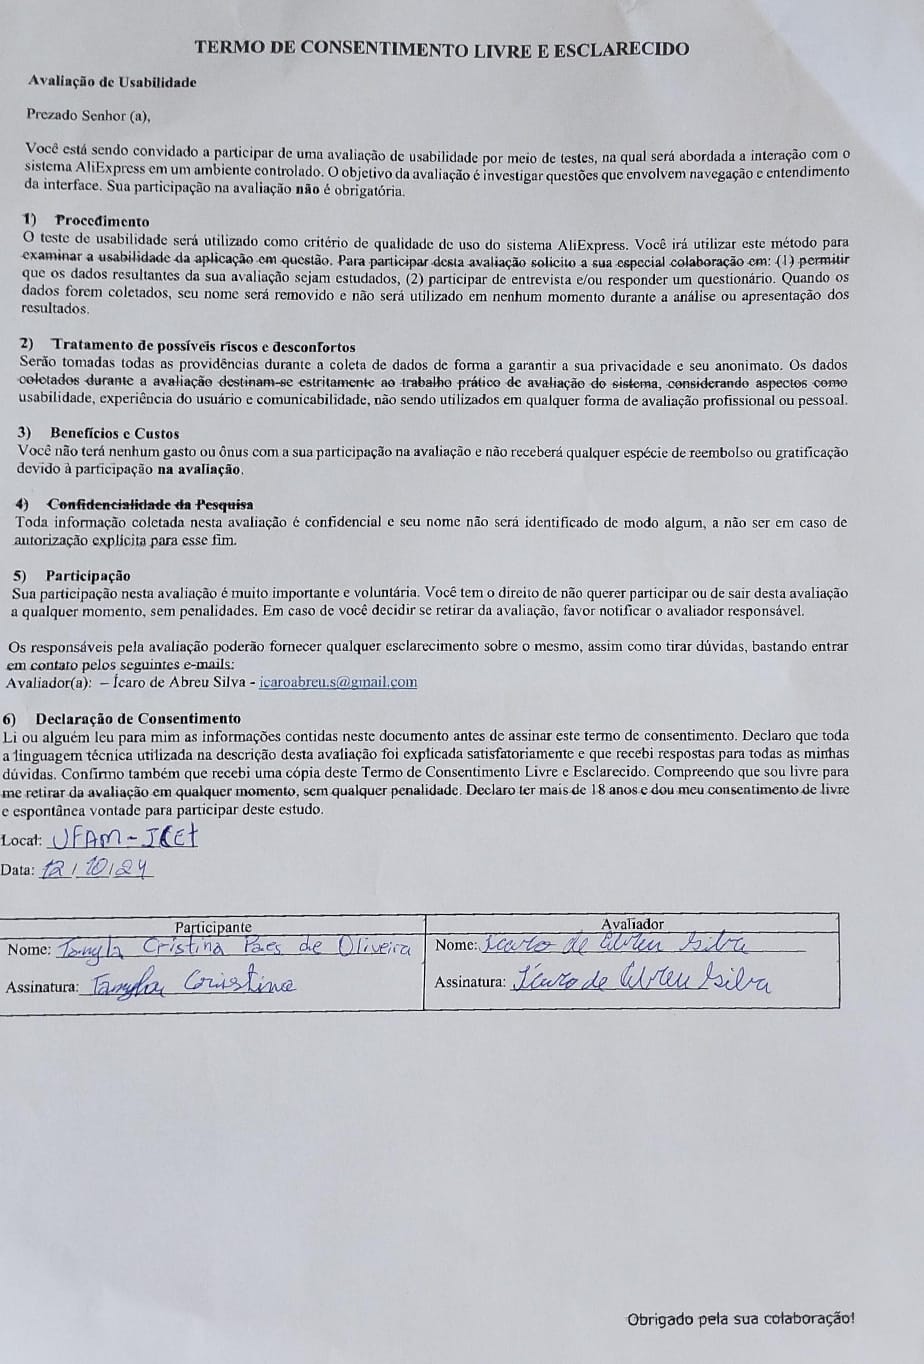 TERMO DE CONSENTIMENTO LIVRE E ESCLARECIDO
Avaliação de Usabilidade
Prezado Senhor (a),
Você está sendo convidado a participar de uma avaliação de usabilidade por meio de testes, na qual será abordada a interação com o
sistema AliExpress em um ambiente controlado. O objetivo da avaliação é investigar questões que envolvem navegação e entendimento
da interface. Sua participação na avaliação não é obrigatória.
1) Procedimento
O teste de usabilidade será utilizado como critério de qualidade de uso do sistema AliExpress. Você irá utilizar este método para
examinar a usabilidade da aplicação em questão. Para participar desta avaliação solicito a sua especial colaboração em: (1) permitir
que os dados resultantes da sua avaliação sejam estudados, (2) participar de entrevista e/ou responder um questionário. Quando os
dados forem coletados, seu nome será removido e não será utilizado em nenhum momento durante a análise ou apresentação dos
resultados.
2) Tratamento de possíveis riscos e desconfortos
Serão tomadas todas as providências durante a coleta de dados de forma a garantir a sua privacidade e seu anonimato. Os dados
coletados durante a avaliação destinam-se estritamente ao trabalho prático de avaliação do sistema, considerando aspectos como
usabilidade, experiência do usuário e comunicabilidade, não sendo utilizados em qualquer forma de avaliação profissional ou pessoal.
3) Benefícios e Custos
Você não terá nenhum gasto ou ônus com a sua participação na avaliação e não receberá qualquer espécie de reembolso ou gratificação
devido à participação na avaliação.
4) Confidencialidade da Pesquisa
Toda informação coletada nesta avaliação é confidencial e seu nome não será identificado de modo algum, a não ser em caso de
autorização explícita para esse fim.
5) Participação
Sua participação nesta avaliação é muito importante e voluntária. Você tem o direito de não querer participar ou de sair desta avaliação
a qualquer momento, sem penalidades. Em caso de você decidir se retirar da avaliação, favor notificar o avaliador responsável.
Os responsáveis pela avaliação poderão fornecer qualquer esclarecimento sobre o mesmo, assim como tirar dúvidas, bastando entrar
em contato pelos seguintes e-mails:
Avaliador(a): – Ícaro de Abreu Silva - icaroabreu.s@gmail.com
6) Declaração de Consentimento
Li ou alguém leu para mim as informações contidas neste documento antes de assinar este termo de consentimento. Declaro que toda
a linguagem técnica utilizada na descrição desta avaliação foi explicada satisfatoriamente e que recebi respostas para todas as minhas
dúvidas. Confirmo também que recebi uma cópia deste Termo de Consentimento Livre e Esclarecido. Compreendo que sou livre para
me retirar da avaliação em qualquer momento, sem qualquer penalidade. Declaro ter mais de 18 anos e dou meu consentimento de livre
e espontânea vontade para participar deste estudo.
Local: UFAM - ICET
Data: 12/10/24
Participante
Nome: Tamyla Cristina Paes de Oliveira
Assinatura: Cristina
Avaliador
Nome: Ícaro de Abreu Silva
Assinatura: Ícaro de Abreu Silva
Obrigado pela sua colaboração!